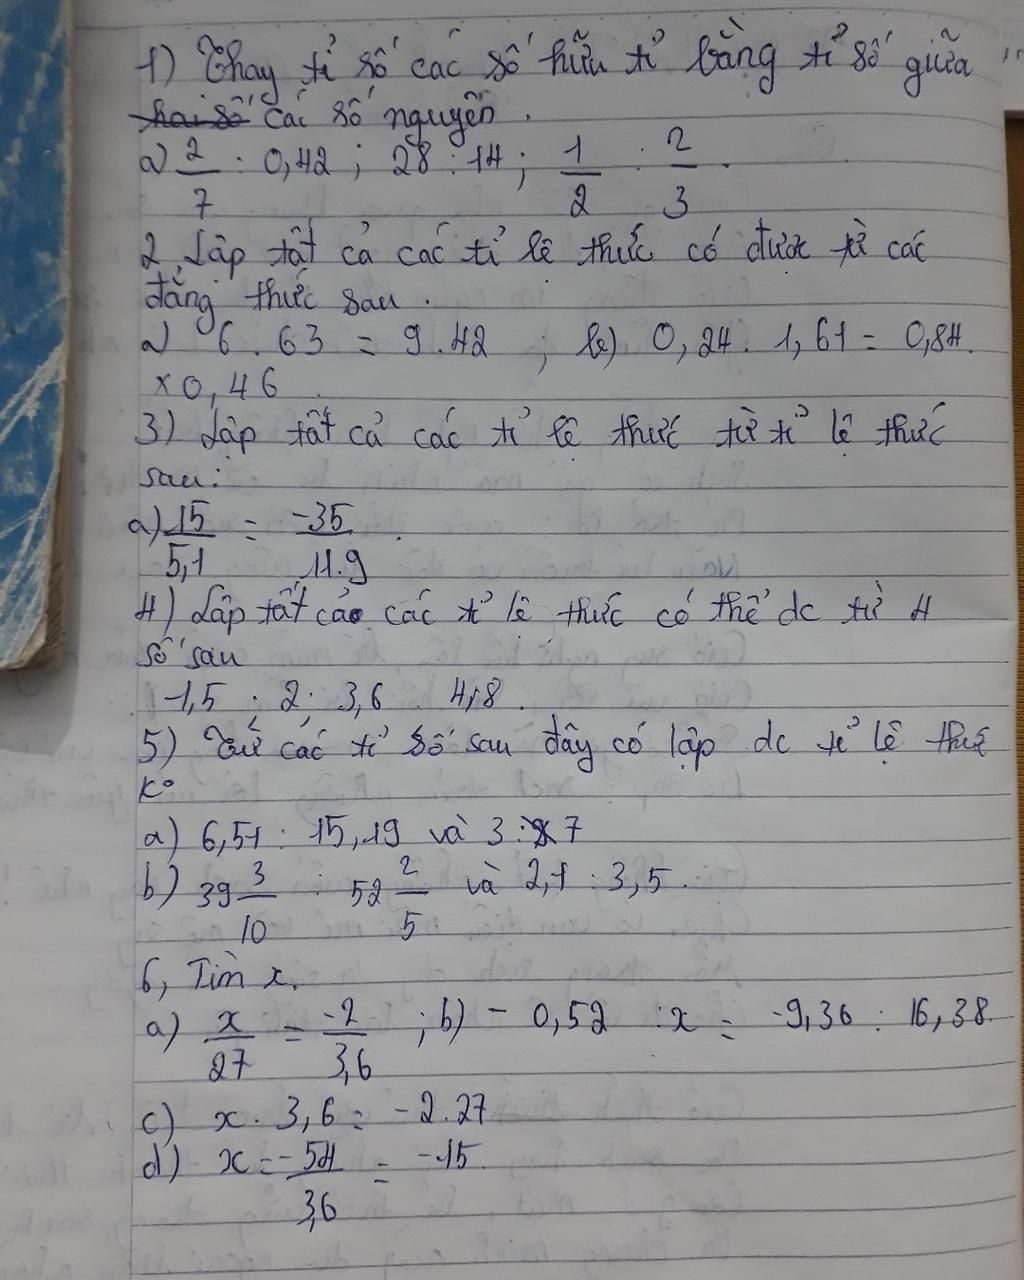 1) Thay tỉ số các số hữu tỉ bằng tỉ số giữa
hai số các số nguyên.
a) 2/7 : 0,42 ; 28 : 14 ; 1/2 : 2/3.
2, Lập tất cả các tỉ lệ thức có được từ các
đẳng thức sau.
a) 6 . 63 = 9.42 ; b) 0,24. 1,61 = 0,84.
x 0,46
3) Lập tất cả các tỉ lệ thức từ tỉ lệ thức
sau:
a) 15/5,1 = -35/11.9.
4) Lập tất cả các tỉ lệ thức có thể dc từ 4
số sau
1,5 ; 2 ; 3,6 4,8.
5) Từ các tỉ số sau đây có lập dc tỉ lệ thức
ko
a) 6,51 : 15,19 và 3 : 7
b) 39 3/10 : 52 2/5 và 2,1 : 3,5.
6, Tìm x.
a) x/27 = -2/3,6 ; b) - 0,52 : x = -9,36 : 16,38.
c) x. 3,6 = -2.27
d) x = -54/3,6 = -15.